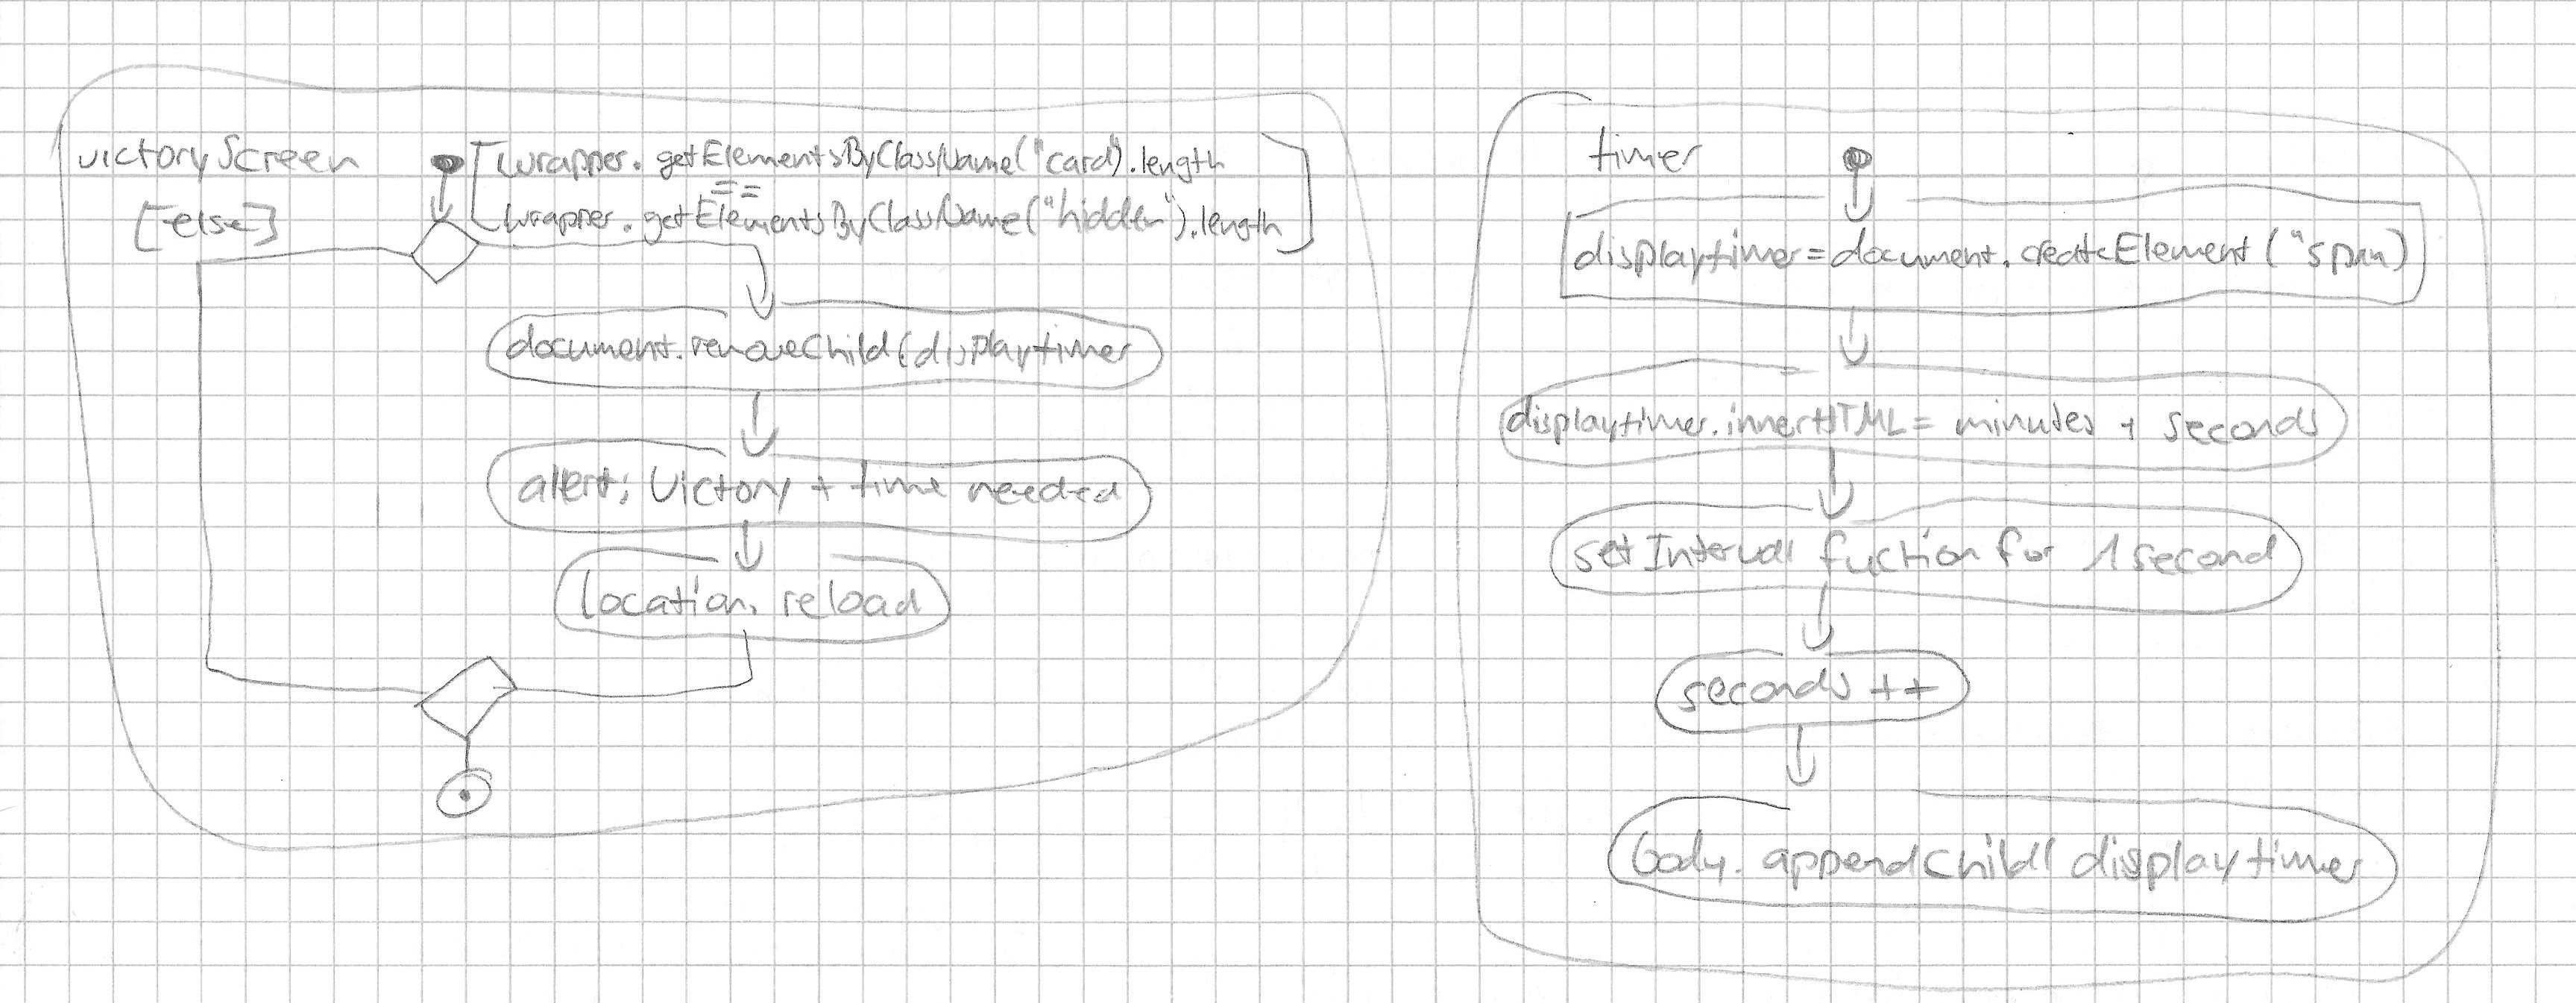 victoryScreen
[else]
[wrapper.getElementsByClassName("card).length
==
wrapper.getElementsByClassName("hidden").length]
document.removeChild(displaytimer
allert: Victory + time needed
location. reload
timer
displaytimer=document.createElement("span)
displaytimer.innerHTML= minutes + seconds
setInterval fuction for 1 second
seconds ++
body. appendChild( displaytimer